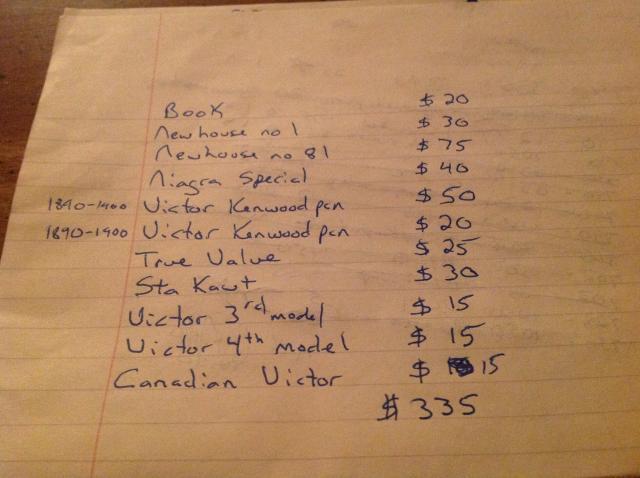 Book $ 20
Newhouse no 1 $ 30
Newhouse no 81 $ 75
Niagra Special $ 40
1890-1900 Victor Kenwood pan $ 50
1890-1900 Victor Kenwood pan $ 20
True Value $ 25
Sta Kawt $ 30
Victor 3rd model $ 15
Victor 4th model $ 15
Canadian Victor $ 15
$ 335